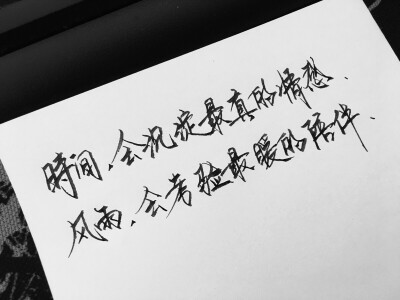 時间,会沉淀最真的情感、
风雨,会考验最暖的陪伴、